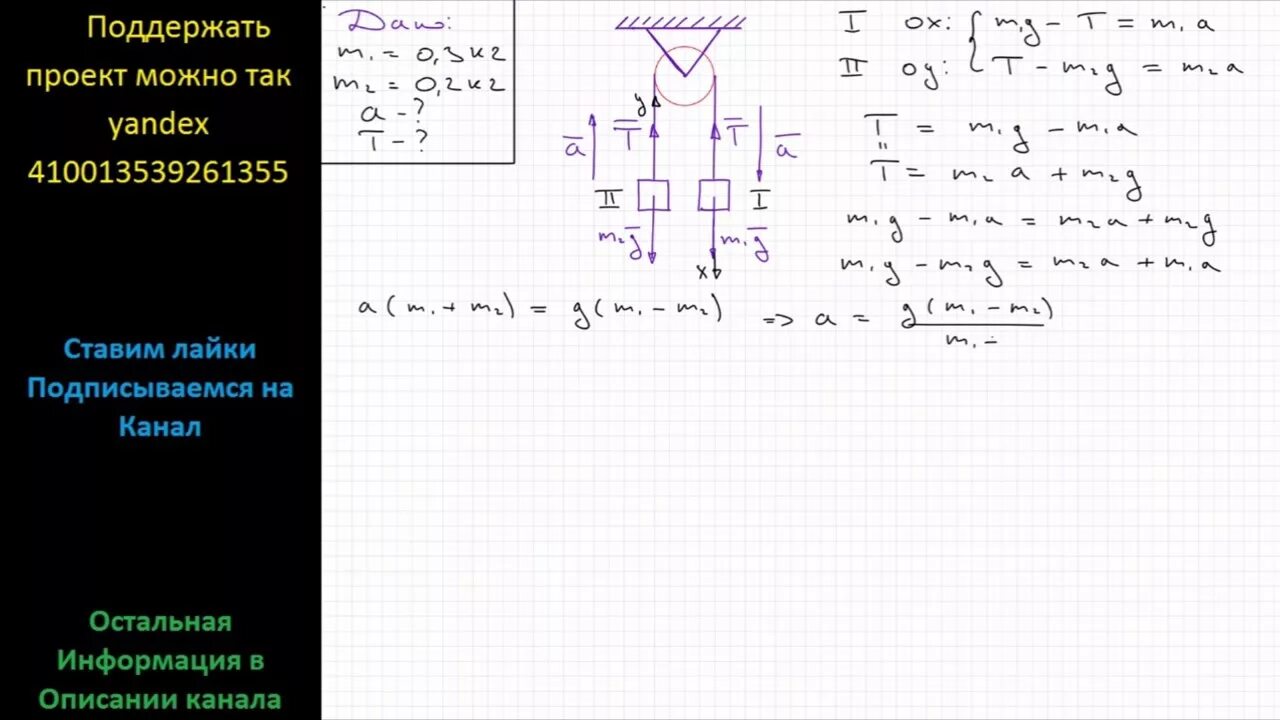 Поддержать
проект можно так
yandex
410013539261355
Ставим лайки
Подписываемся на
Канал
Остальная
Информация в
Описании канала
Дано:
m₁ = 0,3 кг
m₂ = 0,2 кг
a - ?
T - ?
y
a T T a
II I
m₂g m₁g
x
I ox: { m₁g - T = m₁a
II oy: T - m₂g = m₂a
T = m₁g - m₁a
"
T = m₂a + m₂g
m₁g - m₁a = m₂a + m₂g
m₁g - m₂g = m₂a + m₁a
a(m₁ + m₂) = g(m₁ - m₂) => a = g(m₁ - m₂)
m₁ -